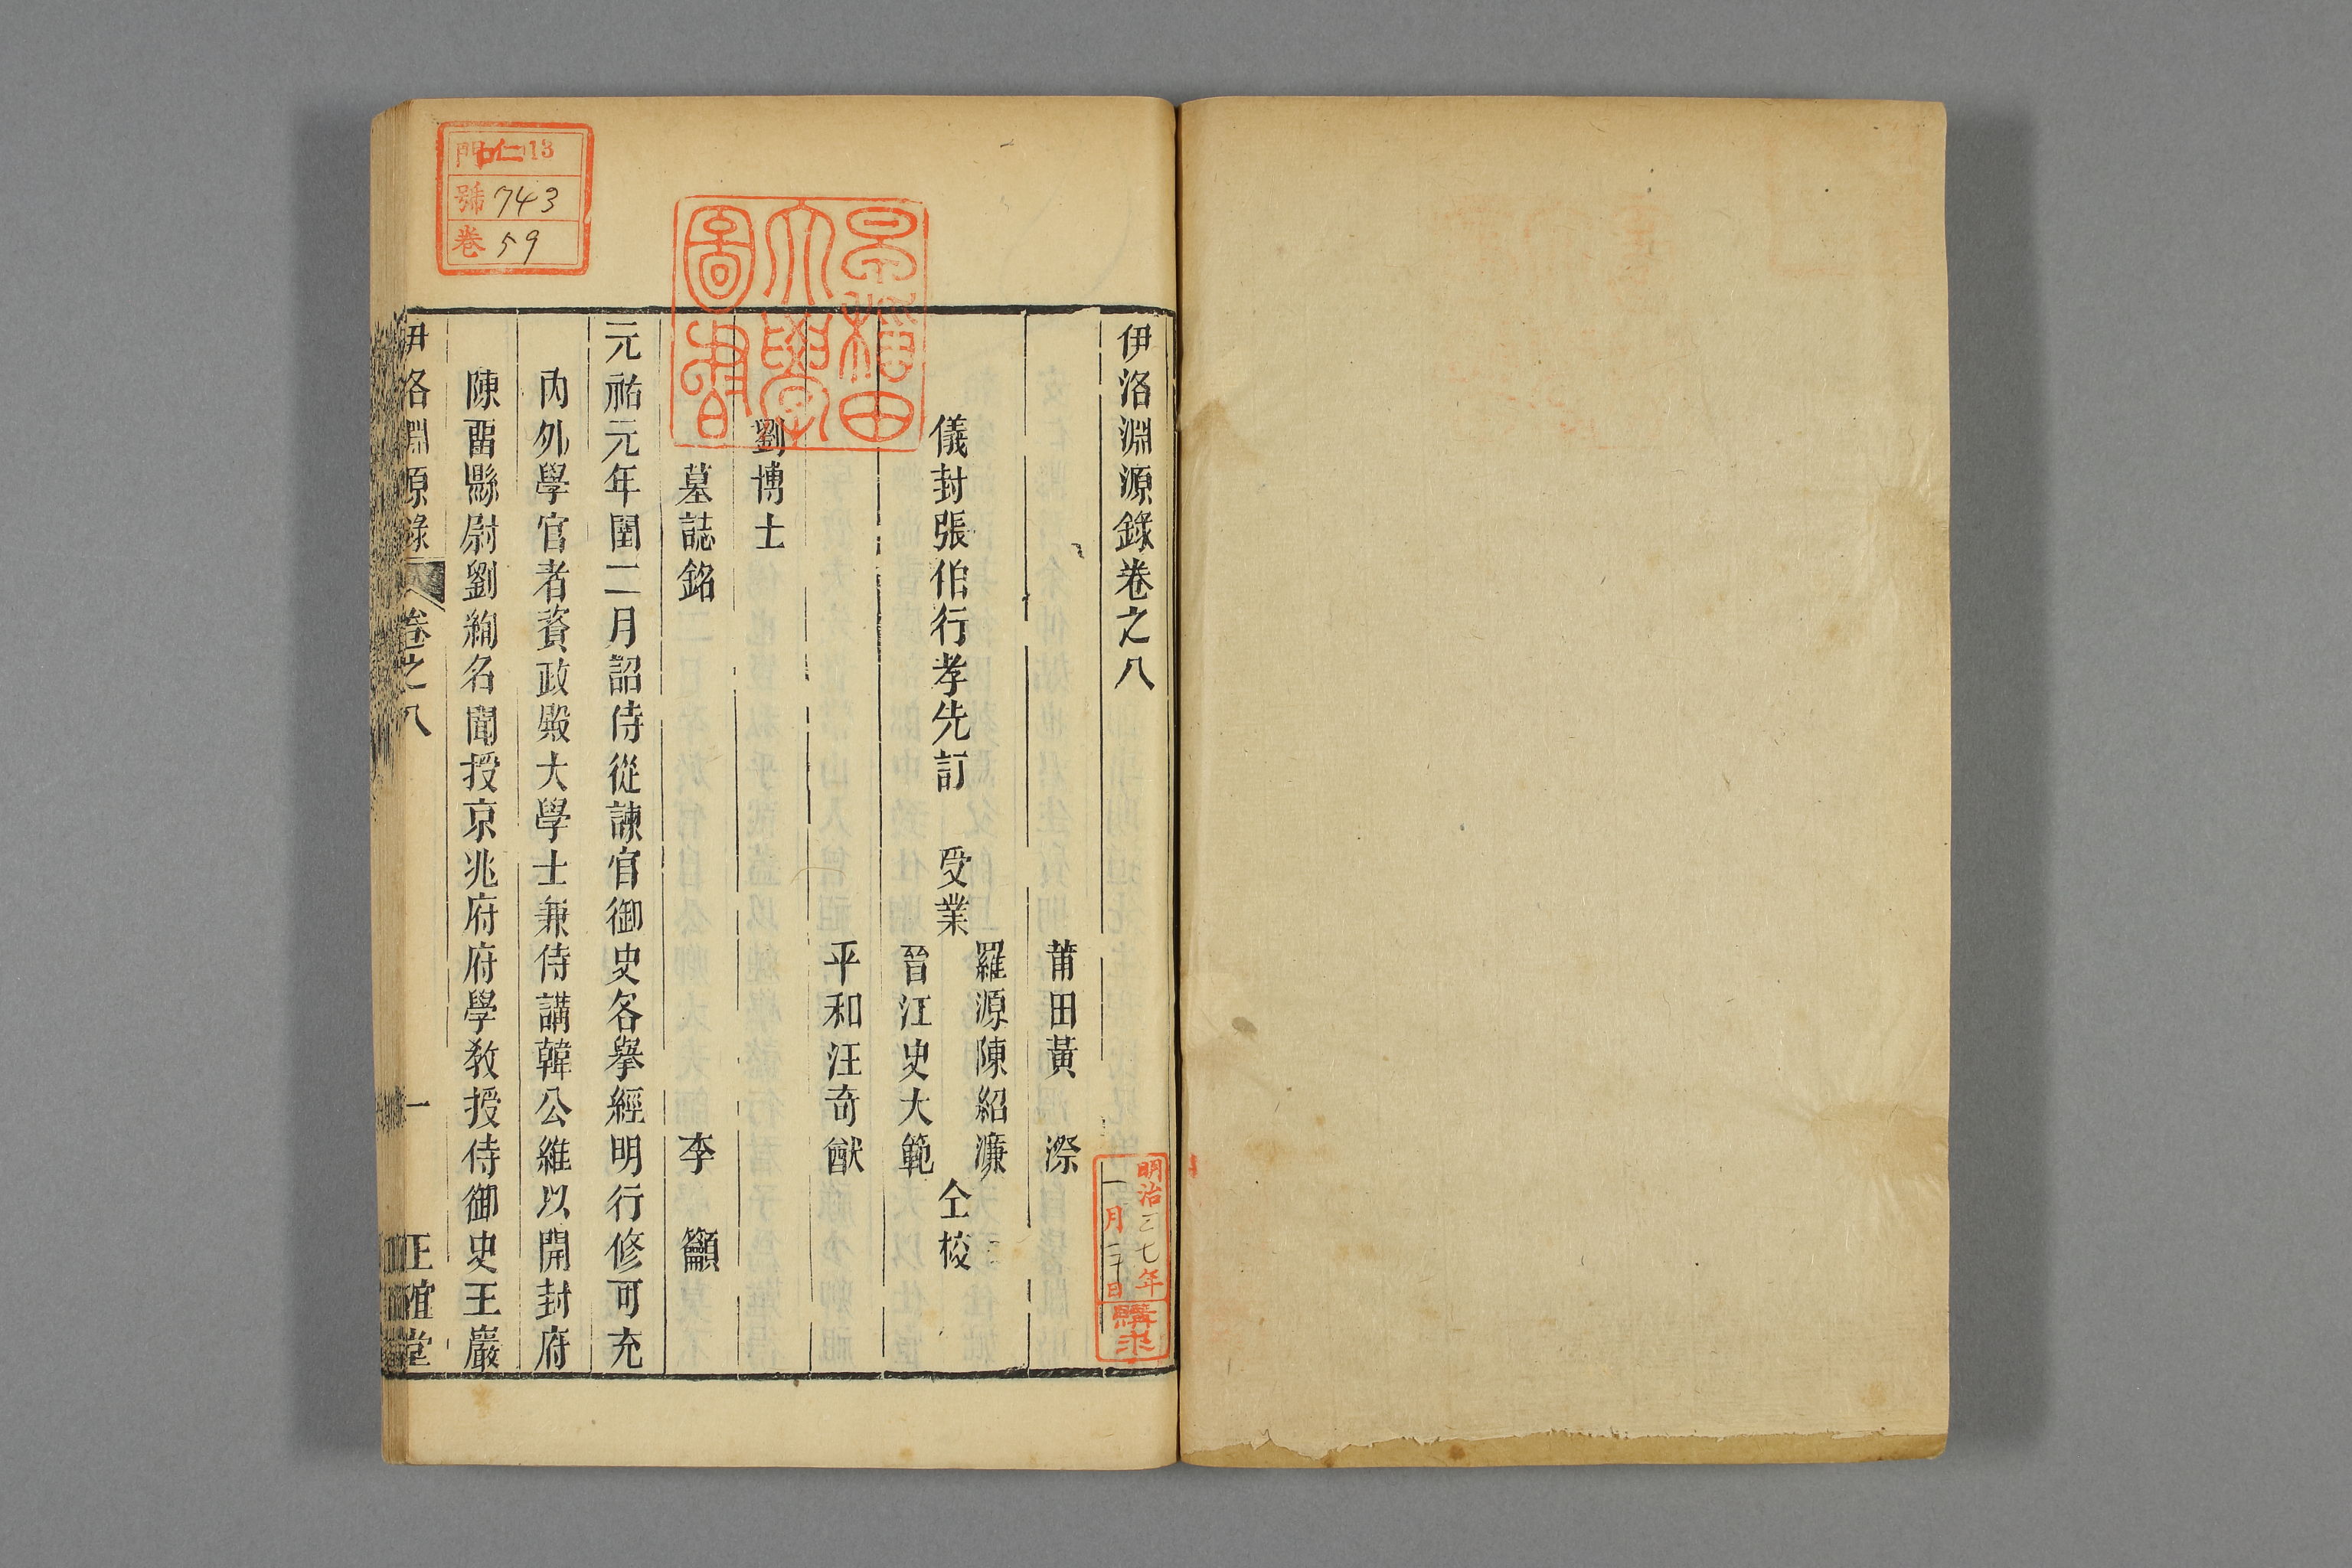 伊洛淵源錄卷之八
莆田黃　漈
儀封張伯行孝先訂　受業
羅源陳紹濂
晉江史大範
仝校
平和汪奇猷
劉博士
墓誌銘　李　籲
元祐元年閏二月詔侍從諫官御史各擧經明行修可充
內外學官者資政殿大學士兼侍講韓公維以開封府
陳畱縣尉劉絢名聞授京兆府府學敎授侍御史王巖
伊洛淵源錄　卷之八　一　正誼堂
早稲田大學圖書
門 仁13
號 743
卷 59
明治三七年
一月二十日
購求